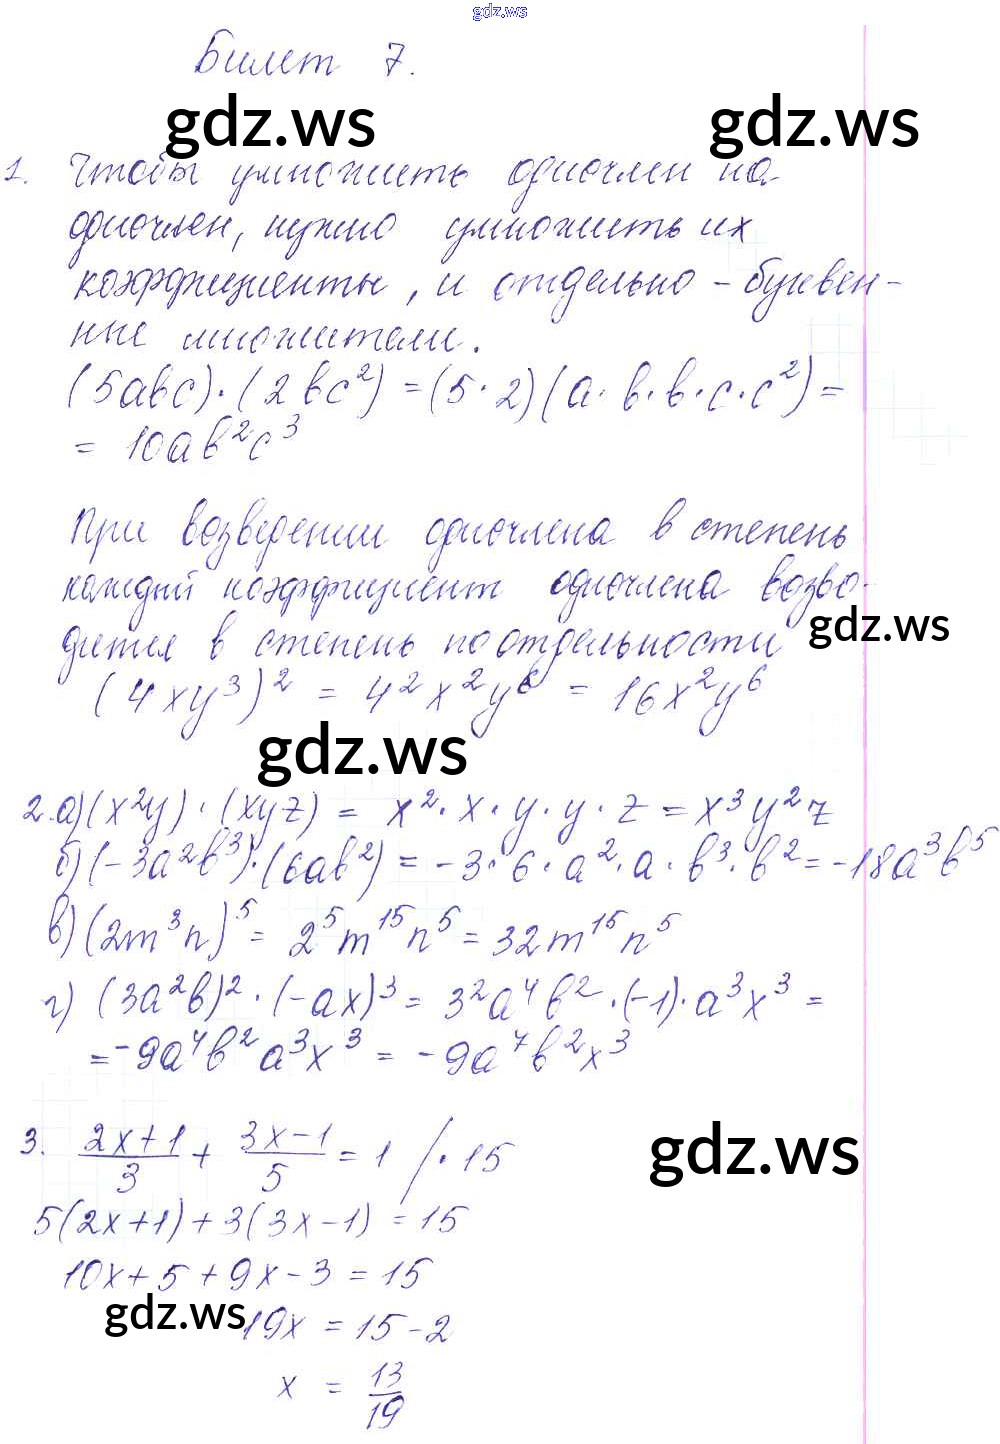 gdz.ws
Билет 7.
gdz.ws gdz.ws
1. Чтобы умножить одночлен на
одночлен, нужно умножить их
коэффициенты, и отдельно - буквен-
ные множители.
(5abc)·(2bc²) = (5·2)(a·b·b·c·c²) =
= 10ab²c³
При возведении одночлена в степень
каждый коэффициент одночлена возво-
дится в степень по отдельности
gdz.ws
(4xy³)² = 4²x²y⁶ = 16x²y⁶
gdz.ws
2. а) (x²y)·(xyz) = x²·x·y·y·z = x³y²z
б) (-3a²b³)·(6ab²) = -3·6·a²·a·b³·b² = -18a³b⁵
в) (2m³n)⁵ = 2⁵m¹⁵n⁵ = 32m¹⁵n⁵
г) (3a²b)²·(-ax)³ = 3²a⁴b²·(-1)·a³x³ =
= -9a⁴b²a³x³ = -9a⁷b²x³
3. (2x+1)/3 + (3x-1)/5 = 1 /·15
gdz.ws
5(2x+1)+3(3x-1) = 15
10x+5+9x-3 = 15
gdz.ws
19x = 15-2
x = 13/19